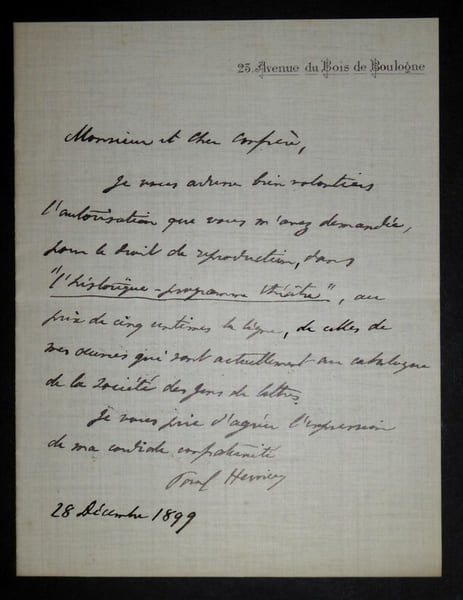 23. Avenue du Bois de Boulogne
Monsieur et Cher Confrère,
Je vous adresse bien volontiers
l'autorisation que vous m'avez demandée,
pour le droit de reproduction, dans
"l'historique-programme théâtre", au
prix de cinq centimes la ligne, de celles de
mes œuvres qui sont actuellement au catalogue
de la Société des gens de lettres.
Je vous prie d'agréer l'expression
de ma cordiale confraternité
Paul Hervieu
28 Décembre 1899